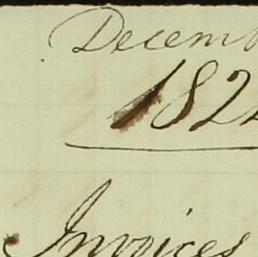 Decemb
182
Invoices